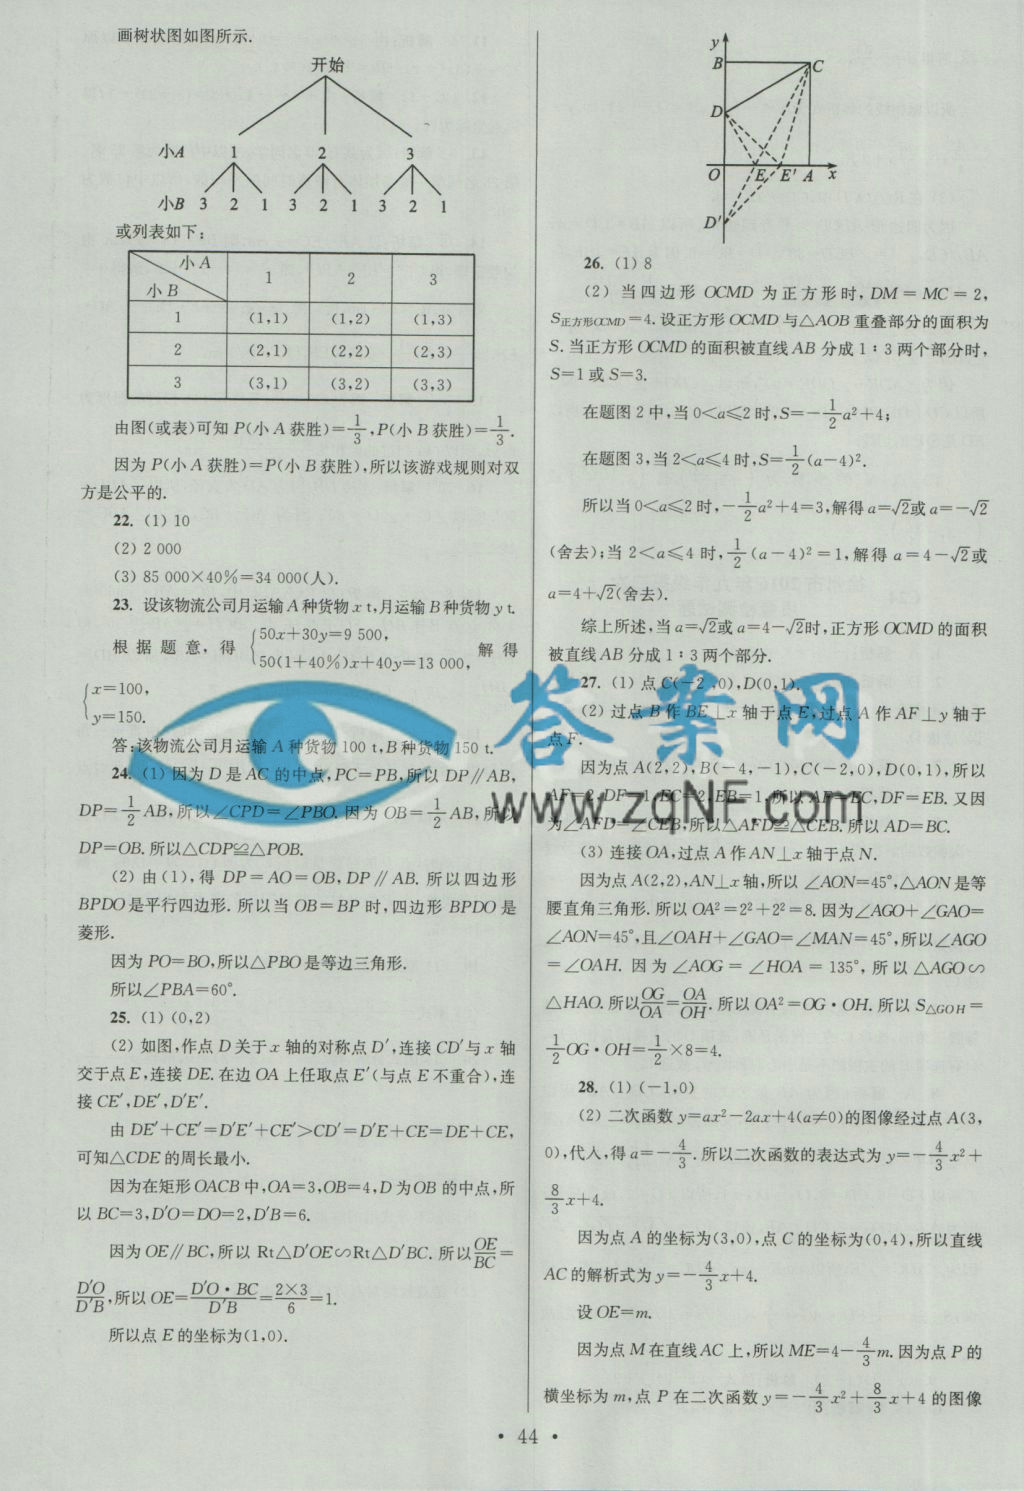 画树状图如图所示.
开始
小A 1 2 3
小B 3 2 1 3 2 1 3 2 1
或列表如下:
小A
小B
1 2 3
1 (1,1) (1,2) (1,3)
2 (2,1) (2,2) (2,3)
3 (3,1) (3,2) (3,3)
由图(或表)可知 P(小A获胜)=1/3,P(小B获胜)=1/3.
因为 P(小A获胜)=P(小B获胜),所以该游戏规则对双
方是公平的.
22. (1) 10
(2) 2 000
(3) 85 000×40%=34 000(人).
23. 设该物流公司月运输A种货物x t,月运输B种货物y t.
根据题意,得 {50x+30y=9 500, 50(1+40%)x+40y=13 000, 解得
{x=100,
y=150.
答:该物流公司月运输A种货物100 t,B种货物150 t.
24. (1) 因为D是AC的中点,PC=PB,所以DP∥AB,
DP=1/2AB,所以∠CPD=∠PBO.因为OB=1/2AB,所以
DP=OB.所以△CDP≌△POB.
(2) 由(1),得DP=AO=OB,DP∥AB.所以四边形
BPDO是平行四边形.所以当OB=BP时,四边形BPDO是
菱形.
因为PO=BO,所以△PBO是等边三角形.
所以∠PBA=60°.
25. (1) (0,2)
(2) 如图,作点D关于x轴的对称点D′,连接CD′与x轴
交于点E,连接DE.在边OA上任取点E′(与点E不重合),连
接CE′,DE′,D′E′.
由DE′+CE′=D′E′+CE′>CD′=D′E+CE=DE+CE,
可知△CDE的周长最小.
因为在矩形OACB中,OA=3,OB=4,D为OB的中点,所
以BC=3,D′O=DO=2,D′B=6.
因为OE∥BC,所以Rt△D′OE∽Rt△D′BC.所以OE/BC=
D′O/D′B,所以OE=D′O·BC/D′B=2×3/6=1.
所以点E的坐标为(1,0).
y
B C
D
O E E′ A x
D′
26. (1) 8
(2) 当四边形OCMD为正方形时,DM=MC=2,
S正方形OCMD=4.设正方形OCMD与△AOB重叠部分的面积为
S.当正方形OCMD的面积被直线AB分成1∶3两个部分时,
S=1或S=3.
在题图2中,当0<a≤2时,S=-1/2a²+4;
在题图3,当2<a≤4时,S=1/2(a-4)².
所以当0<a≤2时,-1/2a²+4=3,解得a=√2或a=-√2
(舍去);当2<a≤4时,1/2(a-4)²=1,解得a=4-√2或
a=4+√2(舍去).
综上所述,当a=√2或a=4-√2时,正方形OCMD的面积
被直线AB分成1∶3两个部分.
27. (1) 点C(-2,0),D(0,1).
(2) 过点B作BE⊥x轴于点E,过点A作AF⊥y轴于
点F.
因为点A(2,2),B(-4,-1),C(-2,0),D(0,1),所以
AF=2,DF=1,EC=2,EB=1.所以AF=EC,DF=EB.又因
为∠AFD=∠CEB,所以△AFD≌△CEB.所以AD=BC.
(3) 连接OA,过点A作AN⊥x轴于点N.
因为点A(2,2),AN⊥x轴,所以∠AON=45°,△AON是等
腰直角三角形.所以OA²=2²+2²=8.因为∠AGO+∠GAO=
∠AON=45°,且∠OAH+∠GAO=∠MAN=45°,所以∠AGO
=∠OAH.因为∠AOG=∠HOA=135°,所以△AGO∽
△HAO.所以OG/OA=OA/OH.所以OA²=OG·OH.所以S△GOH=
1/2OG·OH=1/2×8=4.
28. (1) (-1,0)
(2) 二次函数y=ax²-2ax+4(a≠0)的图像经过点A(3,
0),代人,得a=-4/3.所以二次函数的表达式为y=-4/3x²+
8/3x+4.
因为点A的坐标为(3,0),点C的坐标为(0,4),所以直线
AC的解析式为y=-4/3x+4.
设OE=m.
因为点M在直线AC上,所以ME=4-4/3m.因为点P的
横坐标为m,点P在二次函数y=-4/3x²+8/3x+4的图像
答案网
www.zqNF.com
• 44 •